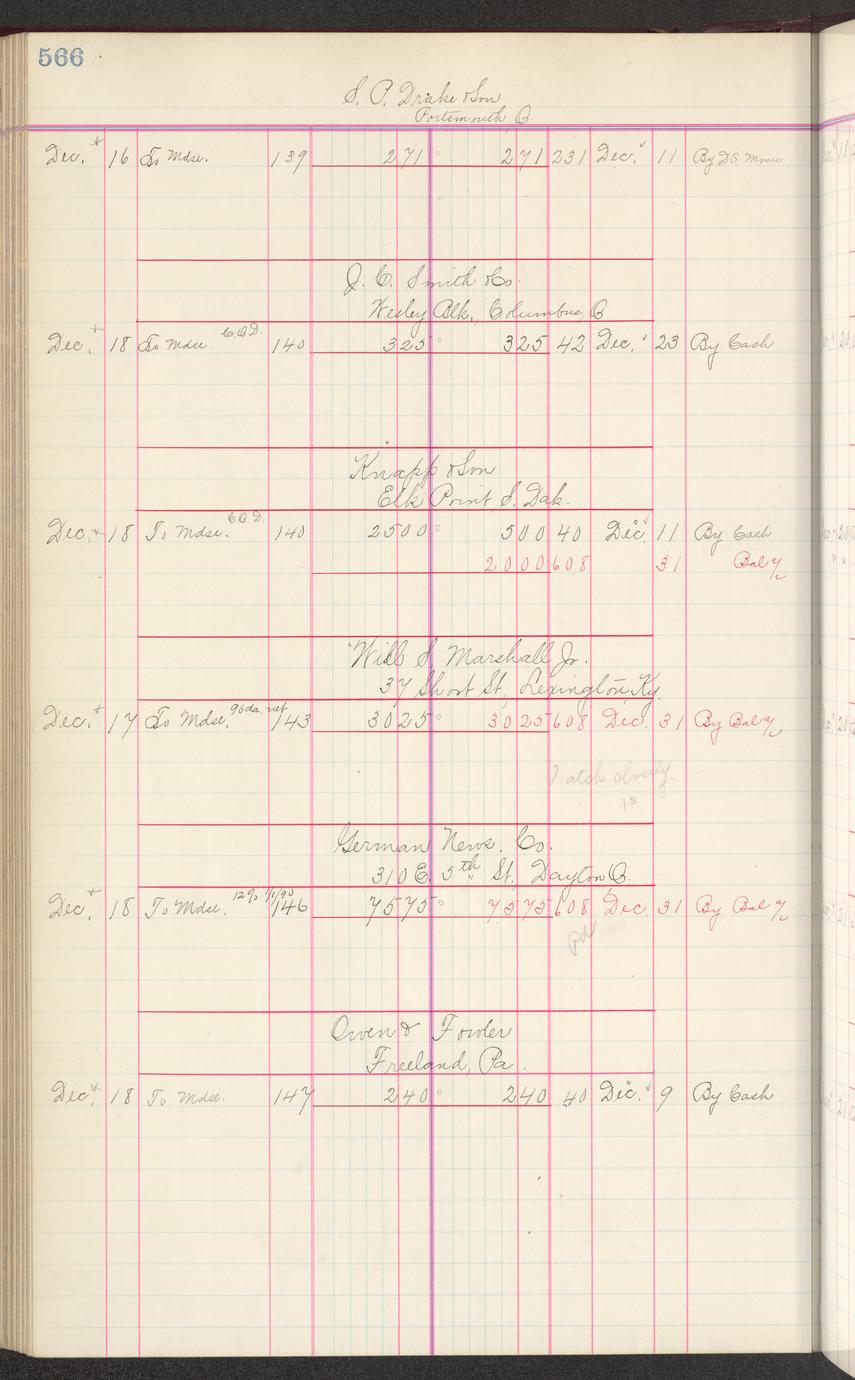 566
S. P. Drake & Son
Portsmouth, O.
Dec. 16 To Mdse. 139 271 271 231 Dec. 11 By DS. Mdse
J. C. Smith & Co.
Wesley Blk., Columbus, O
Dec. 18 To Mdse C.O.D. 140 325 325 42 Dec. 23 By Cash
Knapp & Son
Elk Point S. Dak.
Dec. 18 To Mdse. C.O.D. 140 2500 500 40 Dec. 11 By Cash
2000 608 31 Bal
Will S. Marshall Jr.
37 Short St., Lexington, Ky.
Dec. 17 To Mdse. 90 da. net 143 3025 3025 608 Dec. 31 By Bal
Watch closely.
German News. Co.
310 E. 5th St., Dayton O.
Dec. 18 To Mdse. 12% 1/1/90 146 7575 7575 608 Dec 31 By Bal
pd
Owen & Fowler
Freeland, Pa.
Dec. 18 To Mdse. 147 240 240 40 Dec. 9 By Cash